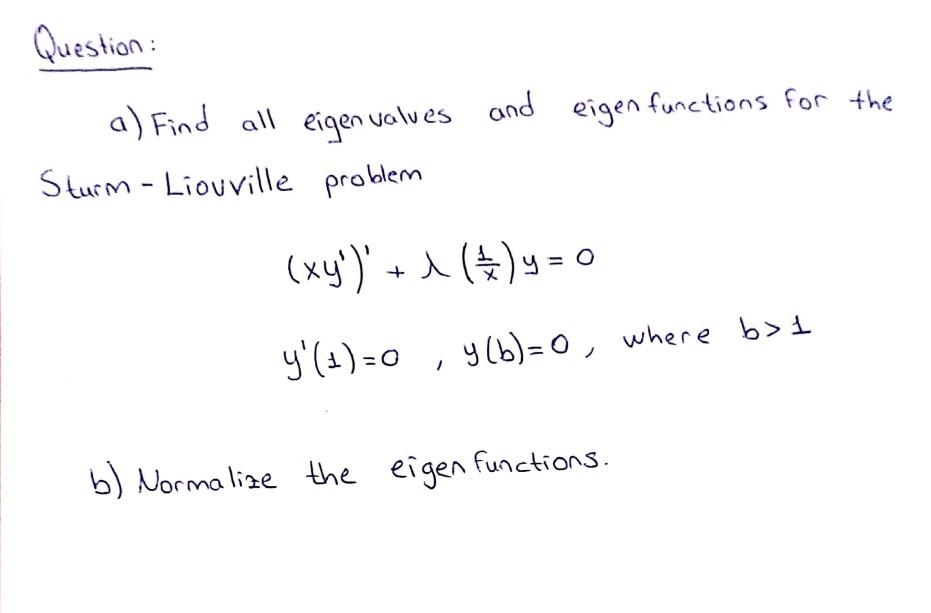 Question:
a) Find all eigenvalues and eigenfunctions for the
Sturm-Liouville problem
(xy')' + λ(1/x)y = 0
y'(1)=0 , y(b)=0, where b>1
b) Normalize the eigenfunctions.